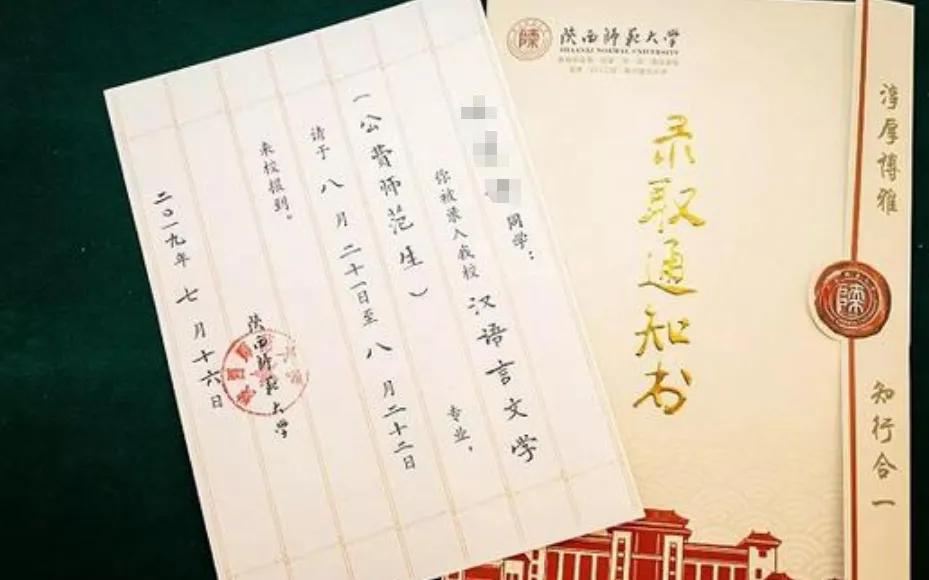 同学：
你被录入我校汉语言文学专业，
（公费师范生）
请于八月二十一日至八月二十二日
来校报到。
陕西师范大学
二〇一九年七月十六日
陕西师范大学
SHAANXI NORMAL UNIVERSITY
录取通知书
淳厚博雅
知行合一